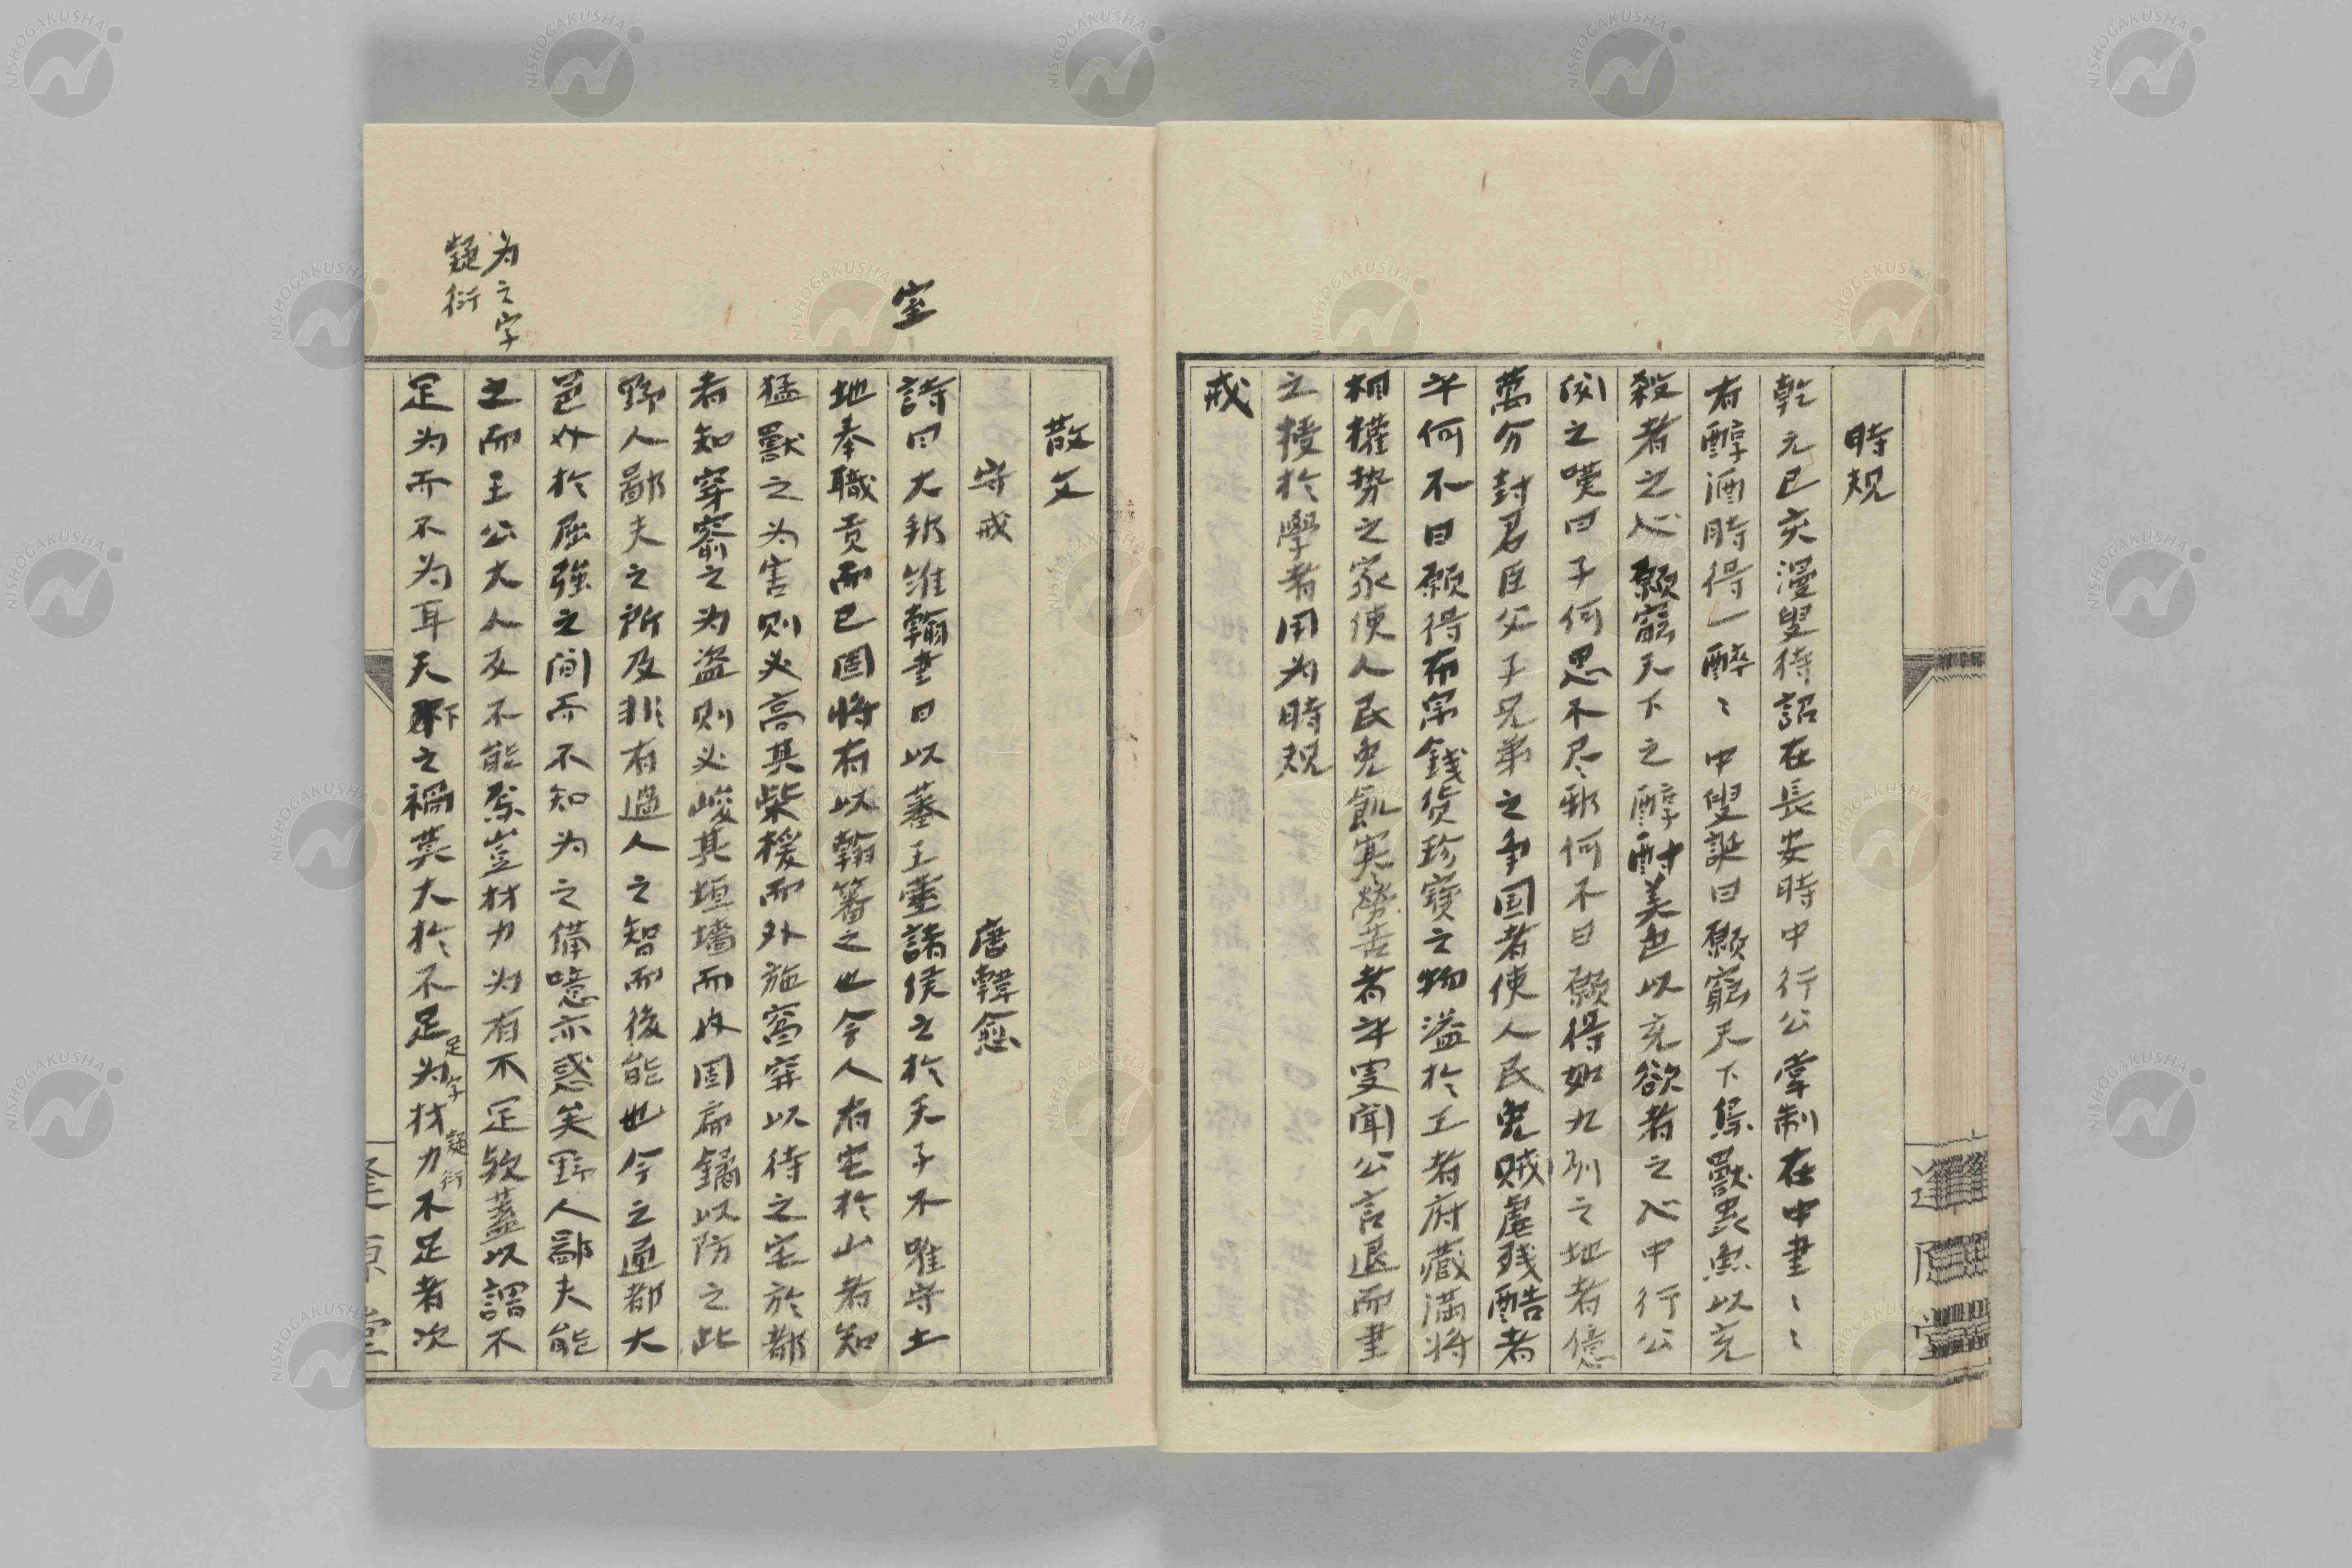 時規
乾元已亥漫叟待詔在長安時中行公掌制在中書〻〻
有醇酒時得一醉〻中叟誕曰願窮天下鳥獸虫魚以充
殺者之心願窮天下之醇酎美色以充欲者之心中行公
聞之嘆曰子何思不尽邪何不曰願得如九列之地者億
萬分封君臣父子兄弟之争国者使人民免賊虐残酷者
乎何不曰願得布帛銭貨珍寶之物溢於王者府藏満将
相權势之家使人民免飢寒勞苦者乎叟聞公言退而書
之授於學者用为時規
戒
散文
守戒 唐韓愈
室
詩曰大邦維翰書曰以蕃王室諸侯之於天子不唯守土
地奉職貢而已固将有以翰蕃之也今人有宅於山者知
猛獸之为害则必高其柴楥而外施窞穽以待之宅於都
者知穿窬之为盗则必峻其垣墻而内固扃鐍以防之此
野人鄙夫之所及非有過人之智而後能也今之通都大
邑介於屈强之间而不知为之備噫亦惑矣野人鄙夫能
为之字
疑衍
之而王公大人反不能焉豈材力为有不足欤蓋以謂不
足为而不为耳天下之禍莫大於不足为材力不足者次
足字疑衍
逢原堂
NISHOGAKUSHA